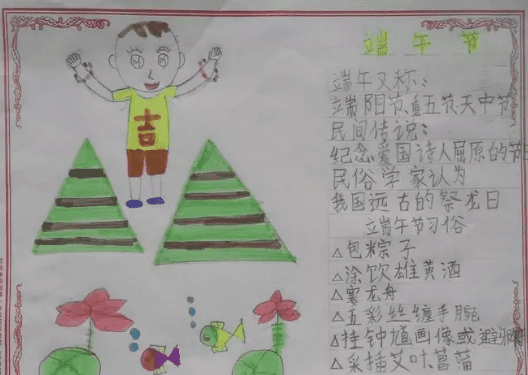 吉
端午节
端午又称：
端阳节,重五节天中节
民间传说：
纪念爱国诗人屈原的节
民俗学家认为
我国远古的祭龙日
立端午节习俗
△包粽子
△涂饮雄黄酒
△赛龙舟
△五彩丝缠手腕
△挂钟馗画像或避邪
△采插艾叶.菖蒲